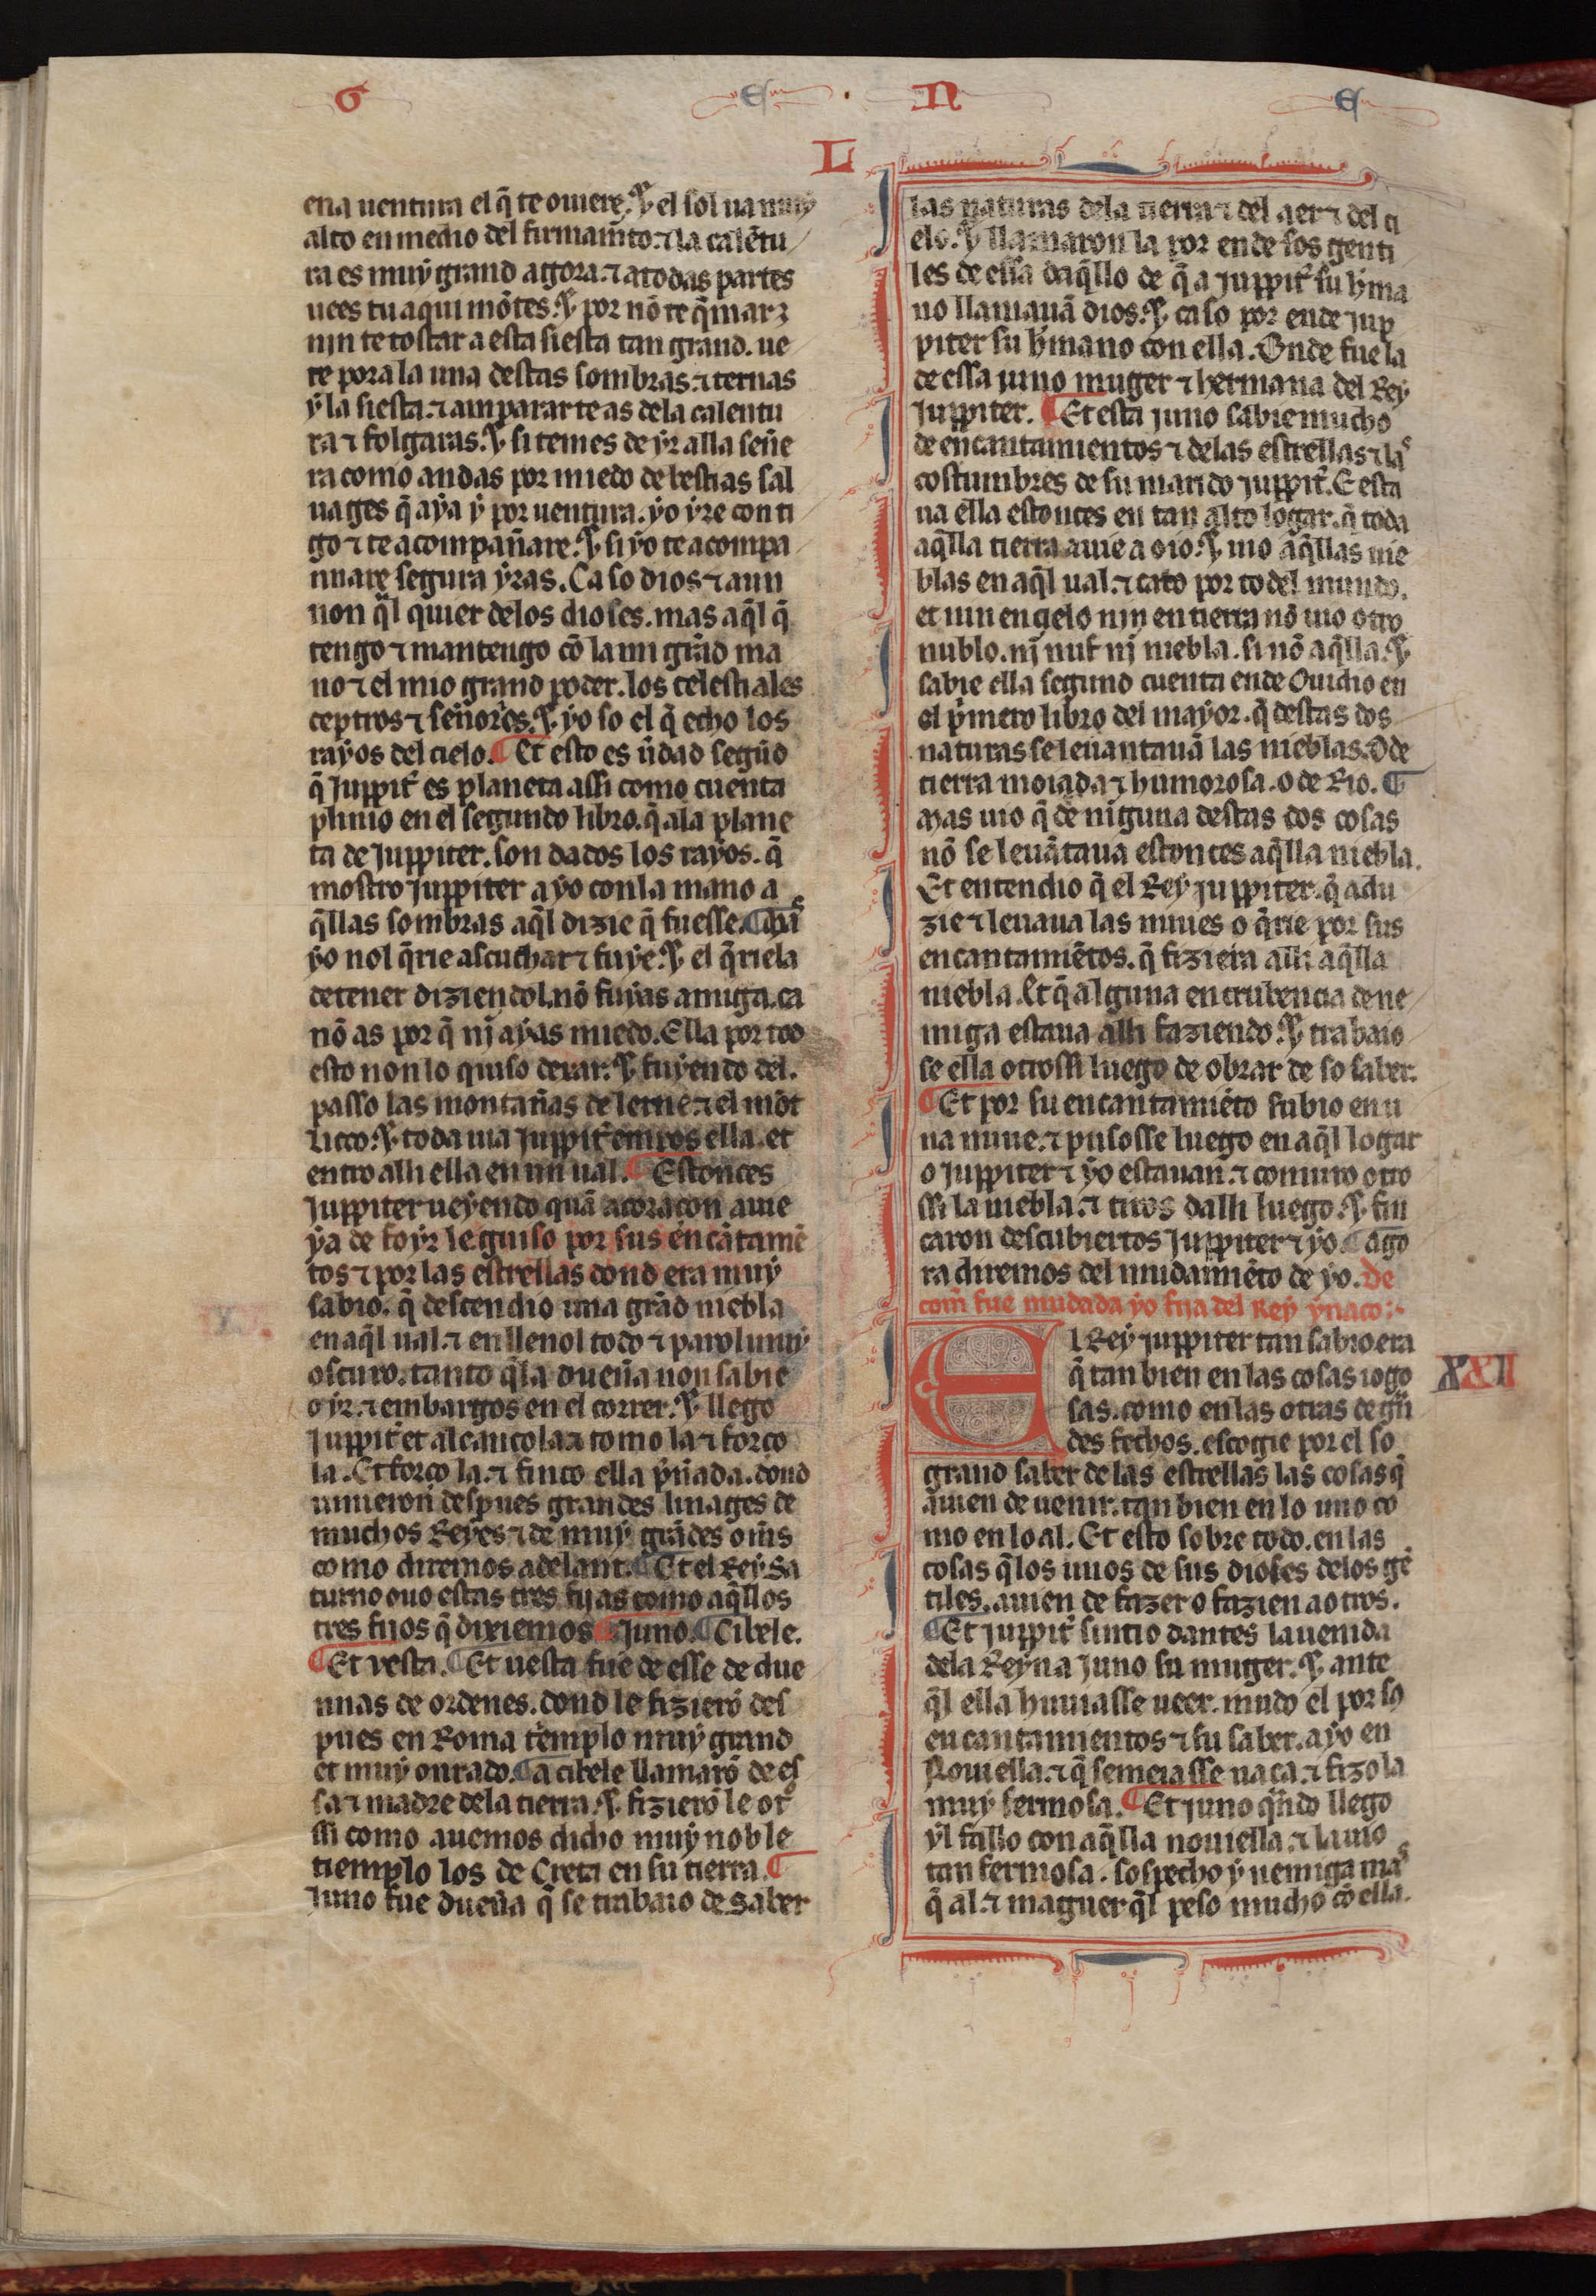 G ES N ES
L
ena uentura el q̃ te ouiere. Y el sol ua muy
alto en medio del firmam̃to. ⁊ la calẽtu
ra es muy grand agora. ⁊ a todas partes
uees tu aqui mõtes. Y por nõ te q̃mar ⁊
nin te tostar a esta siesta tan grand. ue
te pora la una destas sombras. ⁊ ternas
y la siesta. ⁊ ampararte as dela calentu
ra ⁊ folgaras. Y si temes de yr alla señe
ra como andas por miedo de bestias sal
uages q̃ aya y por uentura. yo yre conti
go ⁊ te acompañare. Y si yo te acompa
nnare segura yras. Ca so dios ⁊ aun
non q̃l quier delos dioses. mas aq̃l q̃
tengo ⁊ mantengo cõ la mi grãd ma
no ⁊ el mio grand poder. los celestiales
ceptros ⁊ señores. Y yo so el q̃ echo los
rayos del cielo. ¶ Et esto es ũdad segũd
q̃ Juppit̃ es planeta assi como cuenta
plinio en el segundo libro. q̃ ala plane
ta de Juppiter. son dados los rayos. q̃
mostro Juppiter a yo con la mano a
q̃llas sombras aq̃l dizie q̃ fuesse. ¶ Mas
yo nol q̃rie ascuchar ⁊ fuye. Y el q̃riela
detener diziendol. nõ fuyas amiga. ca
nõ as por q̃ nj̃ ayas miedo. Ella por todo
esto non lo quiso dexar. Y fuyendo del.
passo las montañas de lerne. ⁊ el mõt
Liceo. Y toda uia Juppit̃ empos ella. et
entro alli ella en un ual. ¶ Estonces
Juppiter ueyendo quã a coraçon auie
ya de foyr le guiso por sus encãtamẽ
tos ⁊ por las estrellas dond era muy
sabio. q̃ descendio una grãd niebla
en aq̃l ual. ⁊ enllenol todo ⁊ parol muy
oscuro. tanto q̃ la dueña non sabie
o yr. ⁊ embargos en el correr. Y llego
Juppit̃ et alcançola. ⁊ tomola ⁊ forço
la. Et forço la. ⁊ finco ella p̃ñada. dond
uinieron despues grandes linages de
muchos Reyes ⁊ de muy grãdes om̃s
como diremos adelant. ¶ Et el Rey Sa
turno ouo estas tres fijas como aq̃llos
tres fijos q̃ dixiemos ¶ Juno. ¶ Cibele.
¶ Et vesta. ¶ Et uesta fue deesse de due
nnas de ordenes. dond le fizierõ des
pues en Roma templo muy grand
et muy onrado. ¶ A cibele llamarõ dees
sa ⁊ madre dela tierra. Y fizierõ le otro
ssi como auemos dicho muy noble
tiemplo los de Creta en su tierra. ¶
Juno fue dueña q̃ se trabaio de saber
las naturas dela tierra ⁊ del aer ⁊ del ci
elo. Y llamaron la por ende los genti
les deessa daq̃llo de q̃ a Juppit̃ su h̃ma
no llamauã dios. Y caso por ende Jup
piter su h̃mano con ella. Onde fue la
deessa juno muger ⁊ hermana del Rey
Juppiter. ¶ Et esta juno sabie mucho
de encantamientos ⁊ delas estrellas ⁊ las
costumbres de su marido juppit̃. E esta
ua ella estonces en tan alto logar. q̃ toda
aq̃lla tierra auie a oio. Y uio aq̃llas nie
blas en aq̃l ual. ⁊ cato por todel mundo.
et nin en çielo nin en tierra nõ uio otro
nublo. nj̃ nuf nj̃ niebla. si nõ aq̃lla. Y
sabie ella segund cuenta ende Ouidio en
el p̃mero libro del mayor. q̃ destas dos
naturas se leuantauã las nieblas. O de
tierra moiada ⁊ humorosa. o de Rio. ¶
Mas uio q̃ de niguna destas dos cosas
nõ se leuãtaua estonces aq̃lla niebla.
Et entendio q̃ el Rey Juppiter. q̃ adu
zie ⁊ leuaua las nuues o q̃rie por sus
encantamiẽtos. q̃ fiziera alli aq̃lla
niebla. Et q̃ alguna encrubencia de ne
miga estaua alli faziendo. Y trabaio
se ella otrossi luego de obrar de so saber.
¶ Et por su encantamiẽto subio en u
na nuue. ⁊ pusosse luego en aq̃l logar
o Juppiter ⁊ yo estauan. ⁊ coniuro otro
ssi la niebla. ⁊ tiros dalli luego. Y fin
caron descubiertos Juppiter ⁊ yo. ¶ Ago
ra diremos del mudamiẽto de yo. De
com̃ fue mudada yo fija del Rey ynaco:·
El Rey juppiter tan sabio era
q̃ tan bien en las cosas iogo
XXII
sas. como en las otras de gñ
des fechos. escogie por el so
grand saber de las estrellas las cosas q̃
auien de uenir. tan bien en lo uno co
mo en lo al. Et esto sobre todo. en las
cosas q̃ los unos de sus dioses delos gẽ
tiles. auien de fazer o fazien a otros.
¶ Et juppit̃ sintio dantes la uenida
dela Reyna Juno su muger. Y ante
q̃l ella huuiasse ueer. mudo el por so
encantamientos ⁊ su saber. a yo en
Nouiella. ⁊ q̃ semeiasse uaca. ⁊ fizola
muy fermosa. ¶ Et juno q̃ndo llego
yl fallo con aq̃lla nouiella. ⁊ la uio
tan fermosa. sospecho y nemiga mas
q̃ al. ⁊ maguer q̃l peso mucho cõ ella.